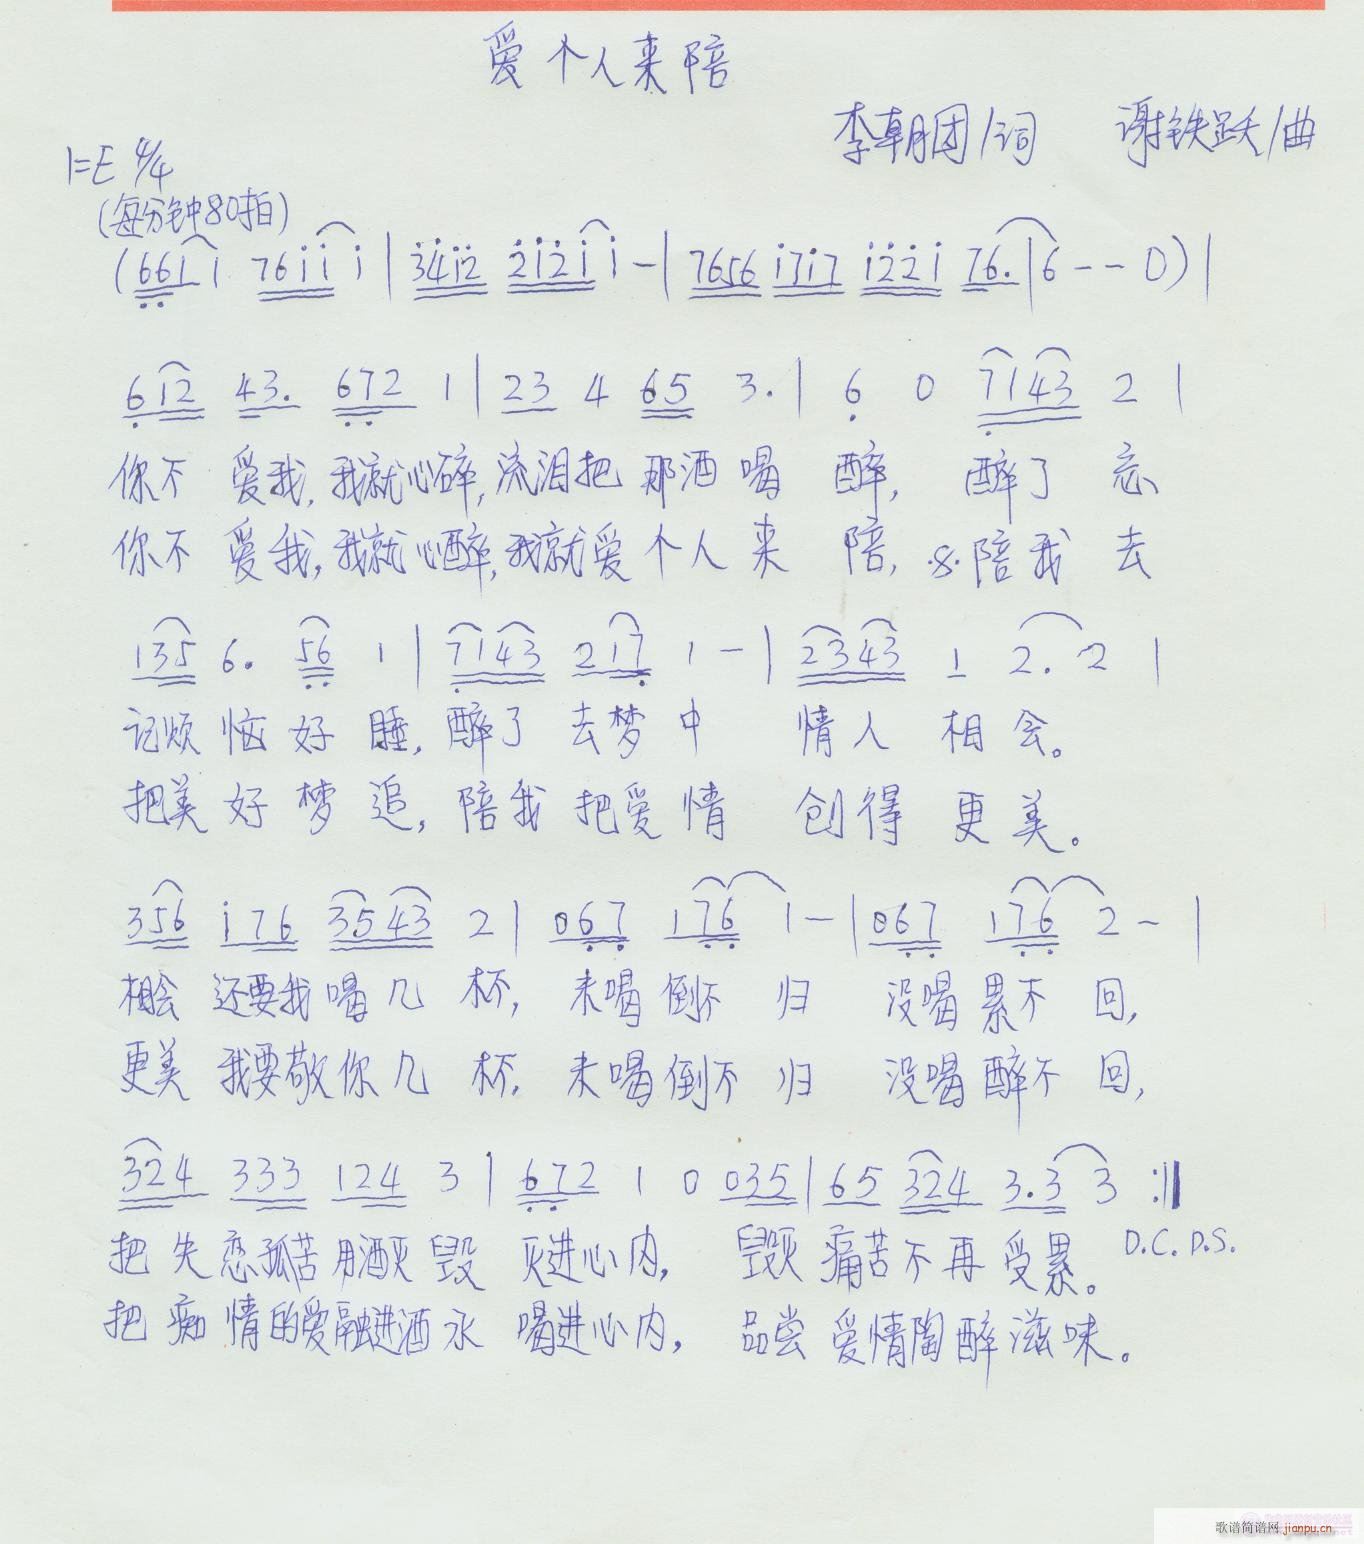 爱个人来陪
李朝团/词 谢铁跃/曲
1=E 4/4
(每分钟80拍)
(661 1 7611 1 | 3412 21211 - | 7656 1717 1221 76. | 6 - - 0) |
612 43. 672 1 | 23 4 65 3. | 6 0 7143 2 |
你不 爱我, 我就心碎, 流泪把 那酒 喝 醉, 醉了 忘
你不 爱我, 我就心醉, 我就爱 个人 来 陪, 陪我 去
135 6. 56 1 | 7143 217 1 - | 2343 1 2. 2 |
记烦 恼 好 睡, 醉了 去梦 中 情人 相 会。
把美 好 梦 追, 陪我 把爱 情 创得 更 美。
356 176 3543 2 | 067 176 1 - | 067 176 2 - |
相会 还要我 喝几 杯, 未喝 倒不 归 没喝 累不 回,
更美 我要敬 你几 杯, 未喝 倒不 归 没喝 醉不 回,
324 333 124 3 | 672 1 0 035 | 65 324 3.3 3 :‖
把失 恋孤苦 用酒灭 毁 灭进心内, 毁灭 痛苦不再 受累。 D.C. D.S.
把痴 情的爱 融进酒 水 喝进心内, 品尝 爱情陶醉 滋味。
歌谱简谱网 jianpu.cn